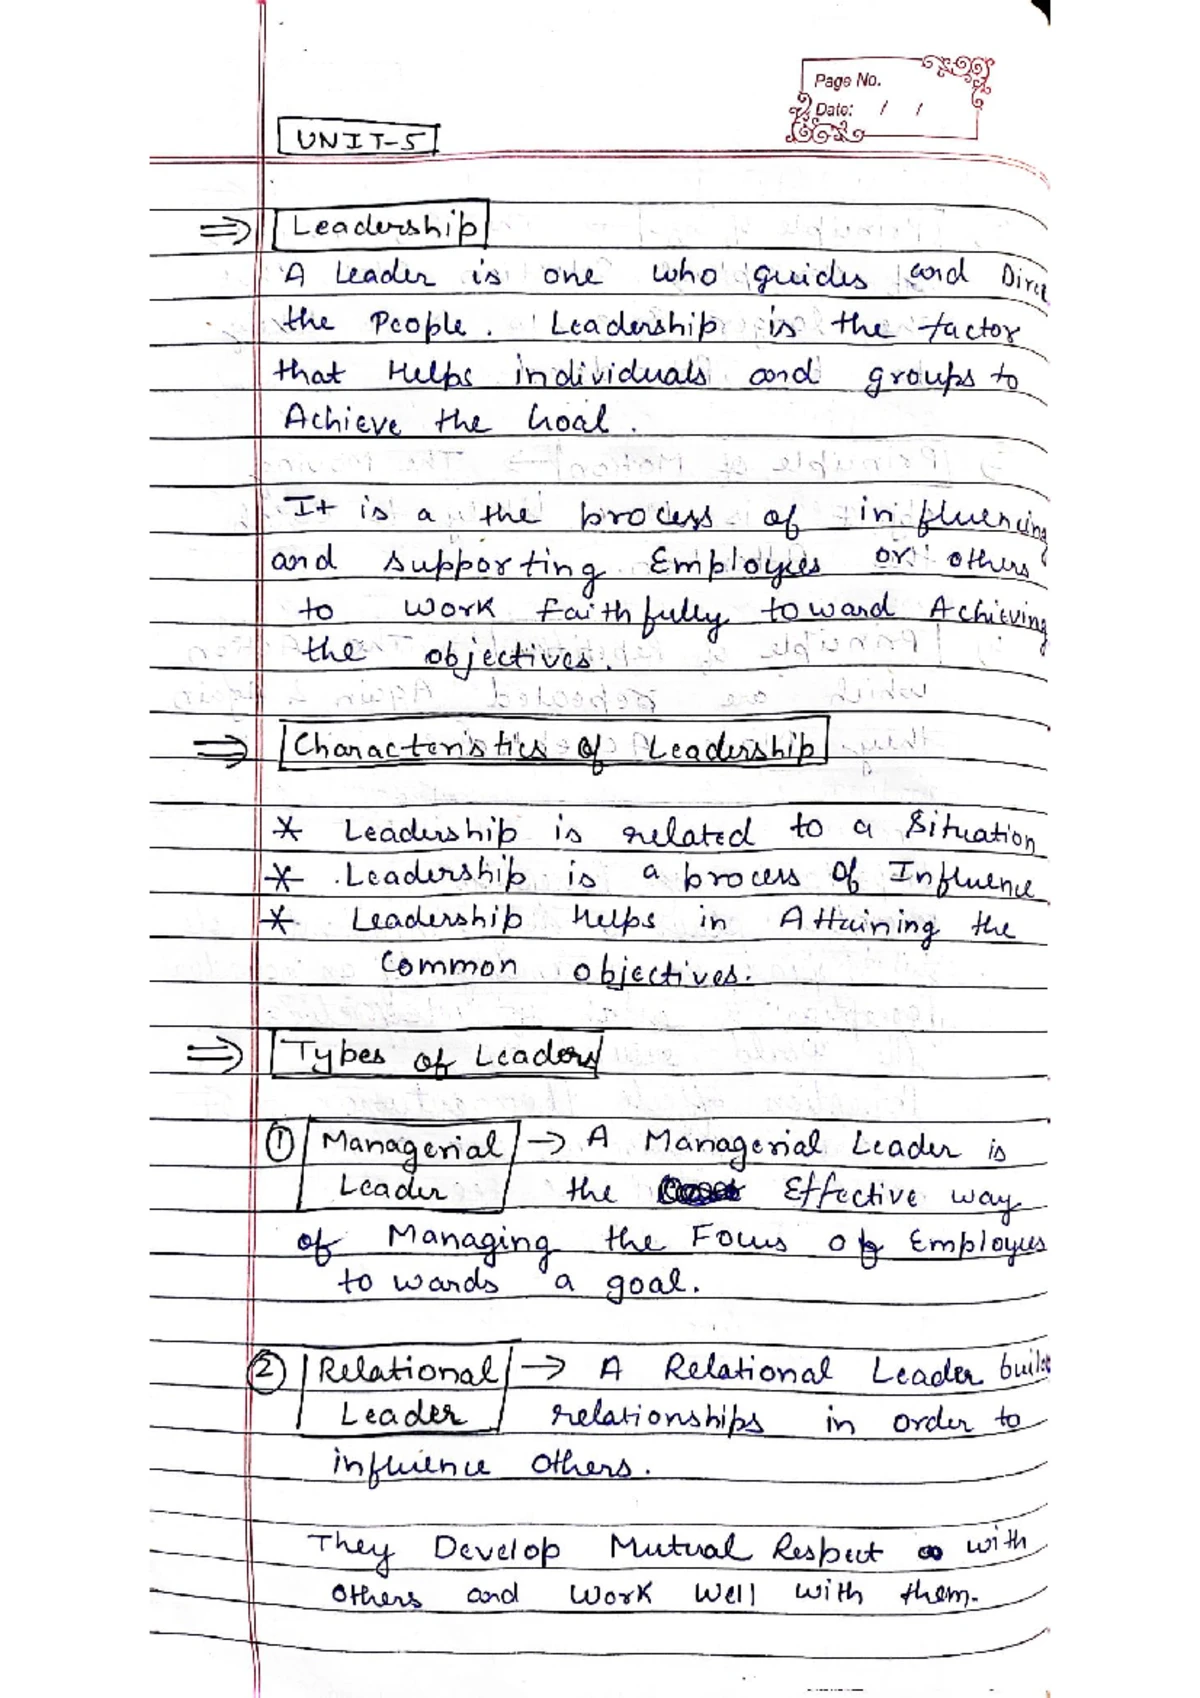 Page No.
Date: / /
UNIT-5
⇒ Leadership
A Leader is one who guides and Direct
the People. Leadership is the factor
that Helps individuals and groups to
Achieve the Goal.
It is a the process of influencing
and supporting Employees or others
to work faithfully toward Achieving
the objectives.
⇒ Characteristics of Leadership
* Leadership is related to a Situation
* Leadership is a process of Influence
* Leadership Helps in Attaining the
Common objectives.
⇒ Types of Leaders
① Managerial → A Managerial Leader is
Leader the Effective way
of Managing the Focus of Employees
towards a goal.
② Relational → A Relational Leader builds
Leader relationships in order to
influence others.
They Develop Mutual Respect with
others and work well with them.